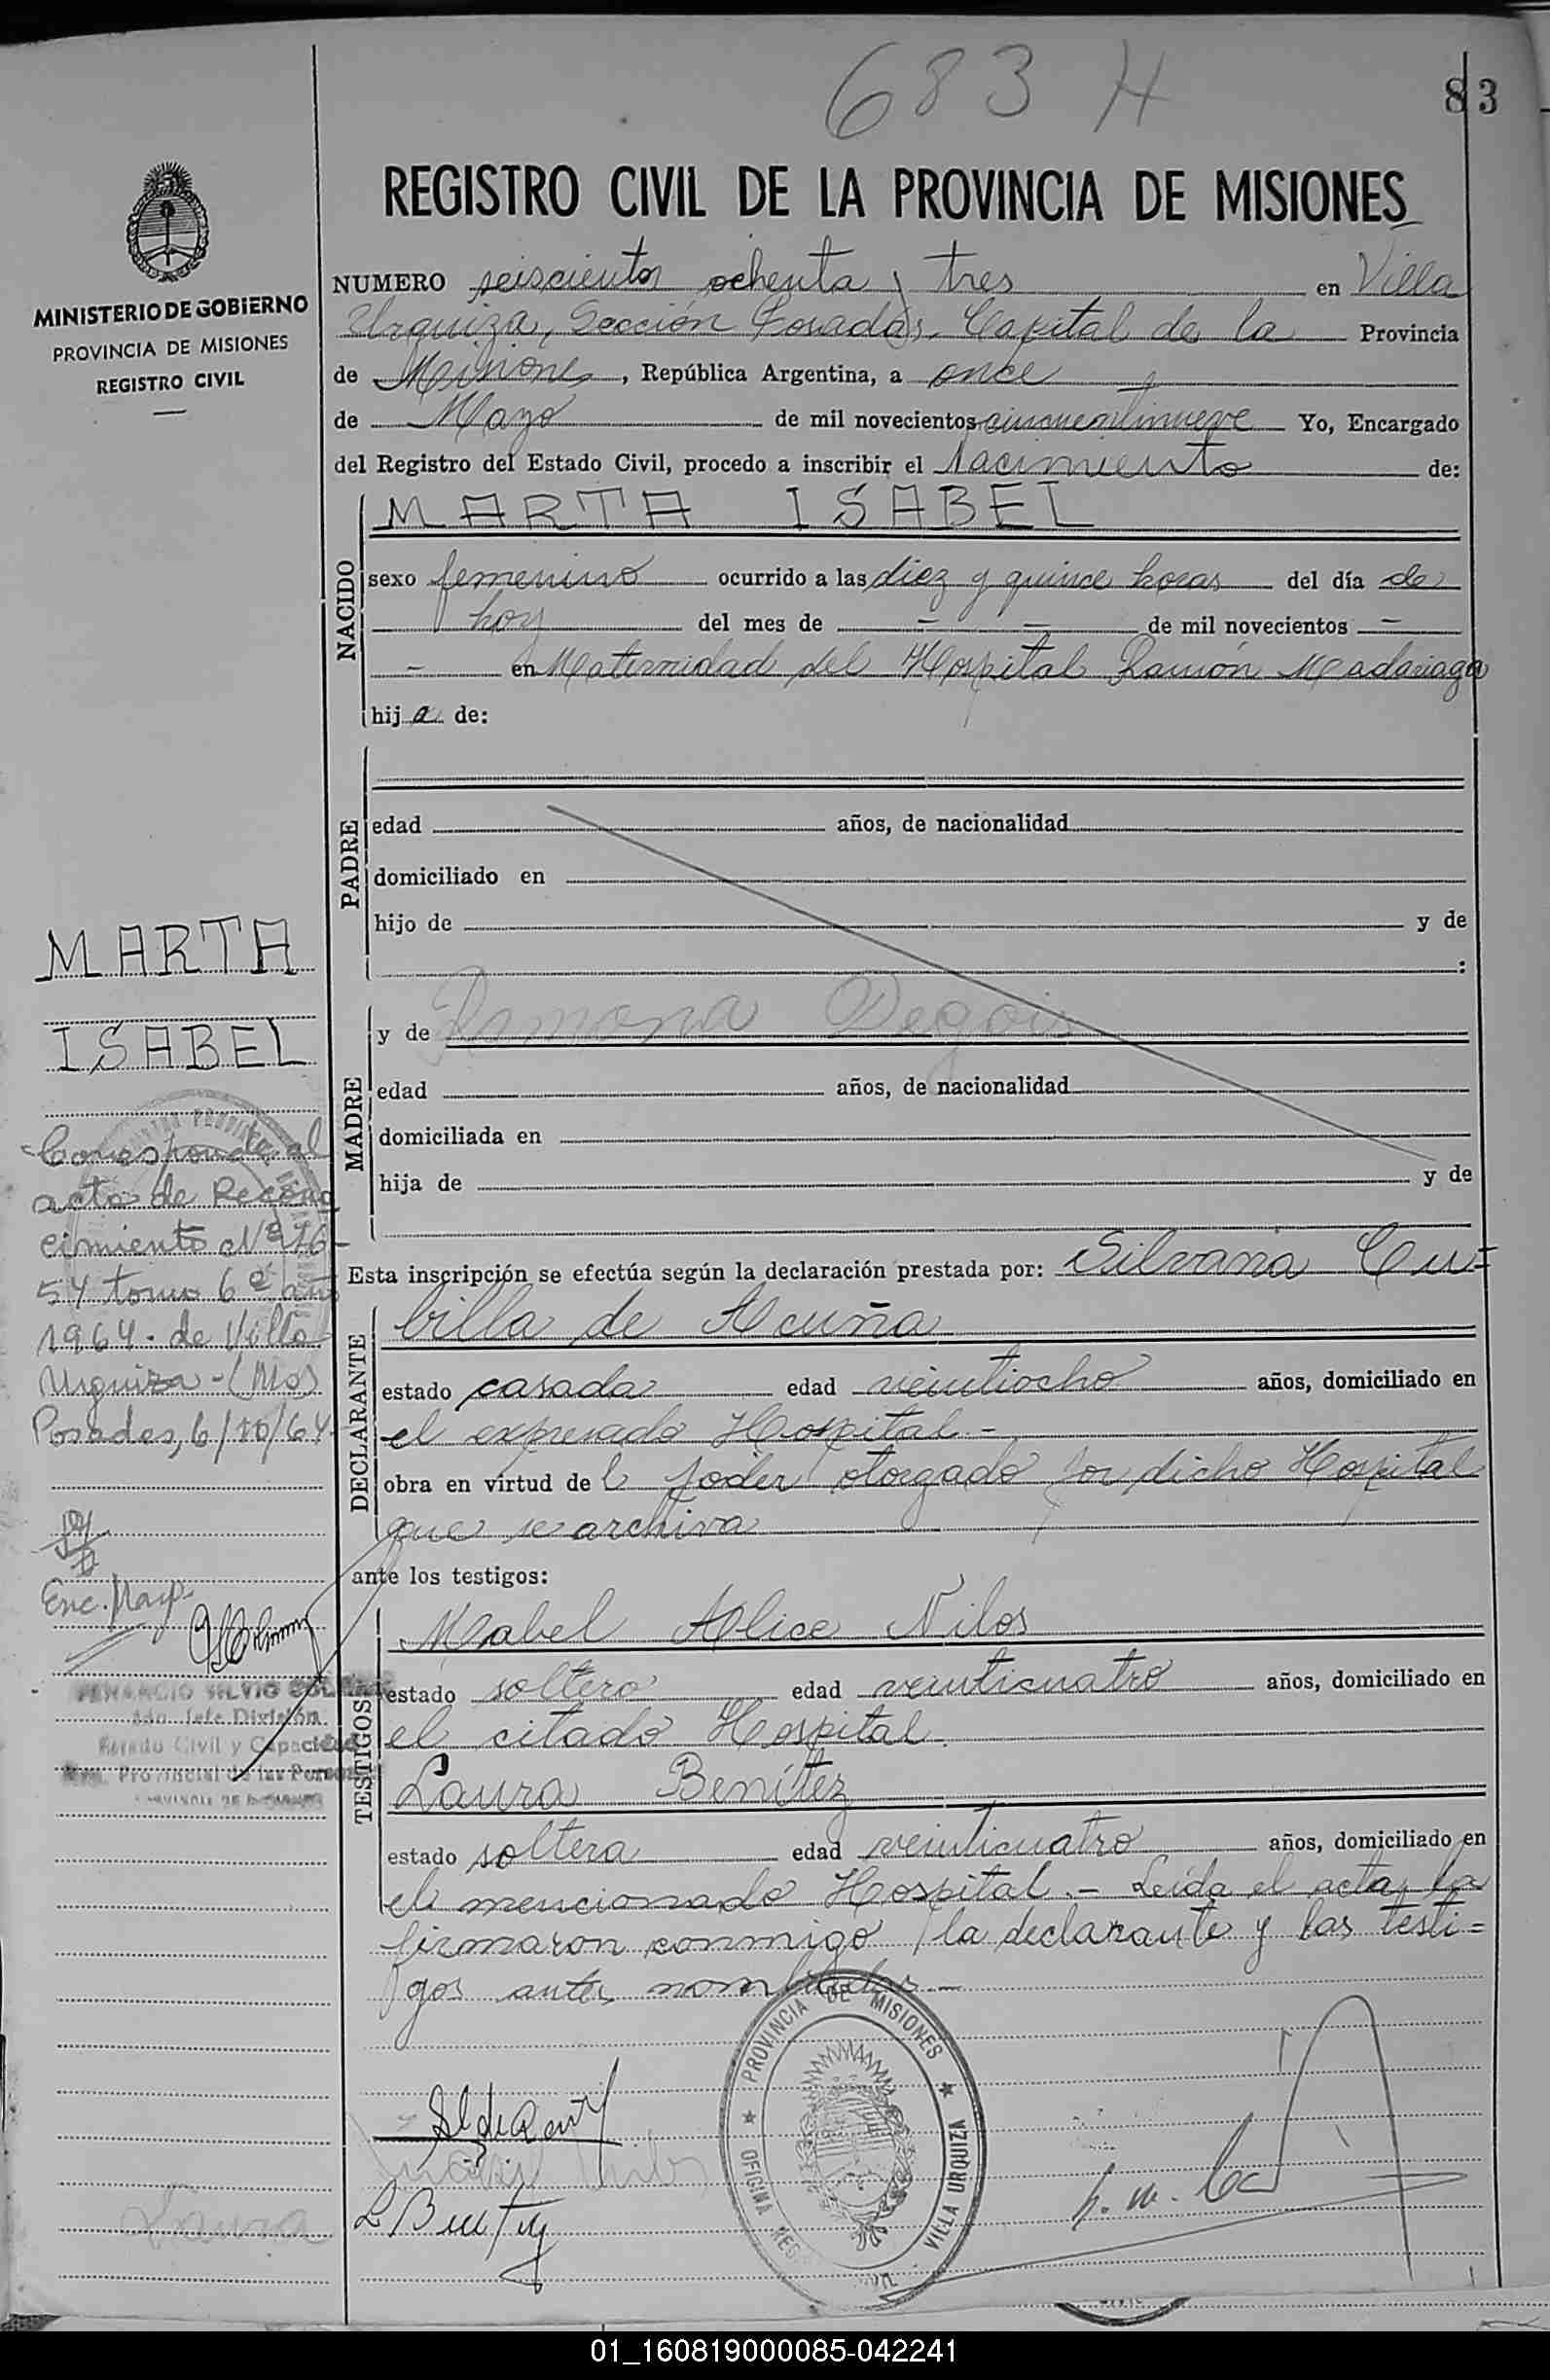 683 H
83
REGISTRO CIVIL DE LA PROVINCIA DE MISIONES
MINISTERIO DE GOBIERNO
PROVINCIA DE MISIONES
REGISTRO CIVIL
NUMERO seiscientos ochenta y tres en Villa
Urquiza, Sección Posadas, Capital de la Provincia
de Misiones, República Argentina, a once
de Mayo de mil novecientos cincuentinueve Yo, Encargado
del Registro del Estado Civil, procedo a inscribir el Nacimiento de:
NACIDO
MARTA ISABEL
sexo femenino ocurrido a las diez y quince horas del día de
hoy del mes de - - de mil novecientos -
- en Maternidad del Hospital Ramón Madariaga
hij a de:
PADRE
edad años, de nacionalidad
domiciliado en
hijo de y de
:
MADRE
y de Ramona Degois
edad años, de nacionalidad
domiciliada en
hija de y de
MARTA
ISABEL
Corresponde al
acta de Recono
cimiento Nº 16
54 tomo 6º año
1964 - de Villa
Urquiza - (Mos)
Posadas, 6/10/64
Enc. Marg.
SILVIO
Jefe División
Estado Civil y Capacidad
Provincial de las Personas
Esta inscripción se efectúa según la declaración prestada por: Silvana Cu=
DECLARANTE
billa de Acuña
estado casada edad veintiocho años, domiciliado en
el expresado Hospital.-
obra en virtud de l poder otorgado por dicho Hospital
que se archiva
ante los testigos:
TESTIGOS
Mabel Alice Nilos
estado soltera edad veinticuatro años, domiciliado en
el citado Hospital.
Laura Benítez
estado soltera edad veinticuatro años, domiciliado en
el mencionado Hospital.- Leída el acta, la
firmaron conmigo la declarante y las testi=
gos antes nombradas.-
PROVINCIA DE MISIONES
OFICINA REG. CIVIL
VILLA URQUIZA
Laura
01_160819000085-042241